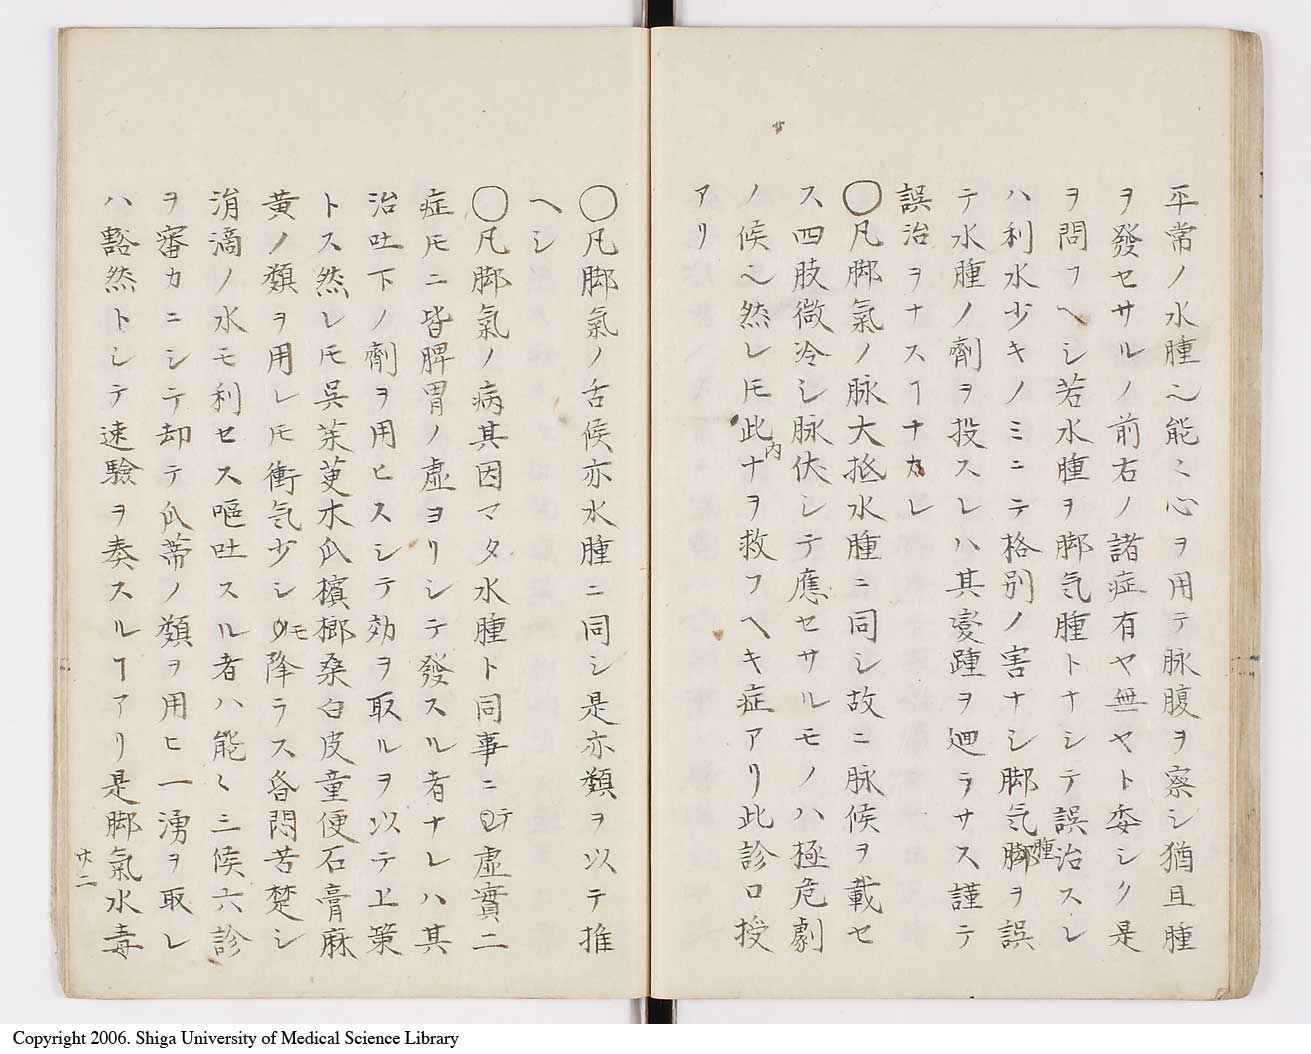 平常ノ水腫ヘ能々心ヲ用テ脉腹ヲ察シ猶且腫
ヲ發セサルノ前右ノ諸症有ヤ無ヤト委シク是
ヲ問フヘシ若水腫ヲ脚気腫トナシテ誤治スレ
ハ利水少キノミニテ格別ノ害ナシ脚気腫ヲ誤
テ水腫ノ劑ヲ投スレハ其変踵ヲ廻ラサス謹テ
誤治ヲナスヿナカレ
〇凡脚氣ノ脉大抵水腫ニ同シ故ニ脉候ヲ載セ
ス四肢微冷シ脉伏シテ應セサルモノハ極危劇
ノ候ヘ然レ𪜈此内ナヲ救フヘキ症アリ此診口授
アリ
〇凡脚氣ノ舌候亦水腫ニ同シ是亦類ヲ以テ推
ヘシ
〇凡脚氣ノ病其因マタ水腫ト同事ニテ虚實二
症𪜈ニ皆脾胃ノ虚ヨリシテ發スル者ナレハ其
治吐下ノ劑ヲ用ヒスシテ効ヲ取ルヲ以テ上策
トス然レ𪜈呉茱萸木瓜檳榔桑白皮童便石膏麻
黄ノ類ヲ用レ𪜈衝気少シモ降ラス昏悶苦楚シ
涓滴ノ水モ利セス嘔吐スル者ハ能々三候六診
ヲ審カニシテ却テ瓜蒂ノ類ヲ用ヒ一湧ヲ取レ
ハ豁然トシテ速驗ヲ奏スルヿアリ是脚氣水毒
廿二
Copyright 2006. Shiga University of Medical Science Library